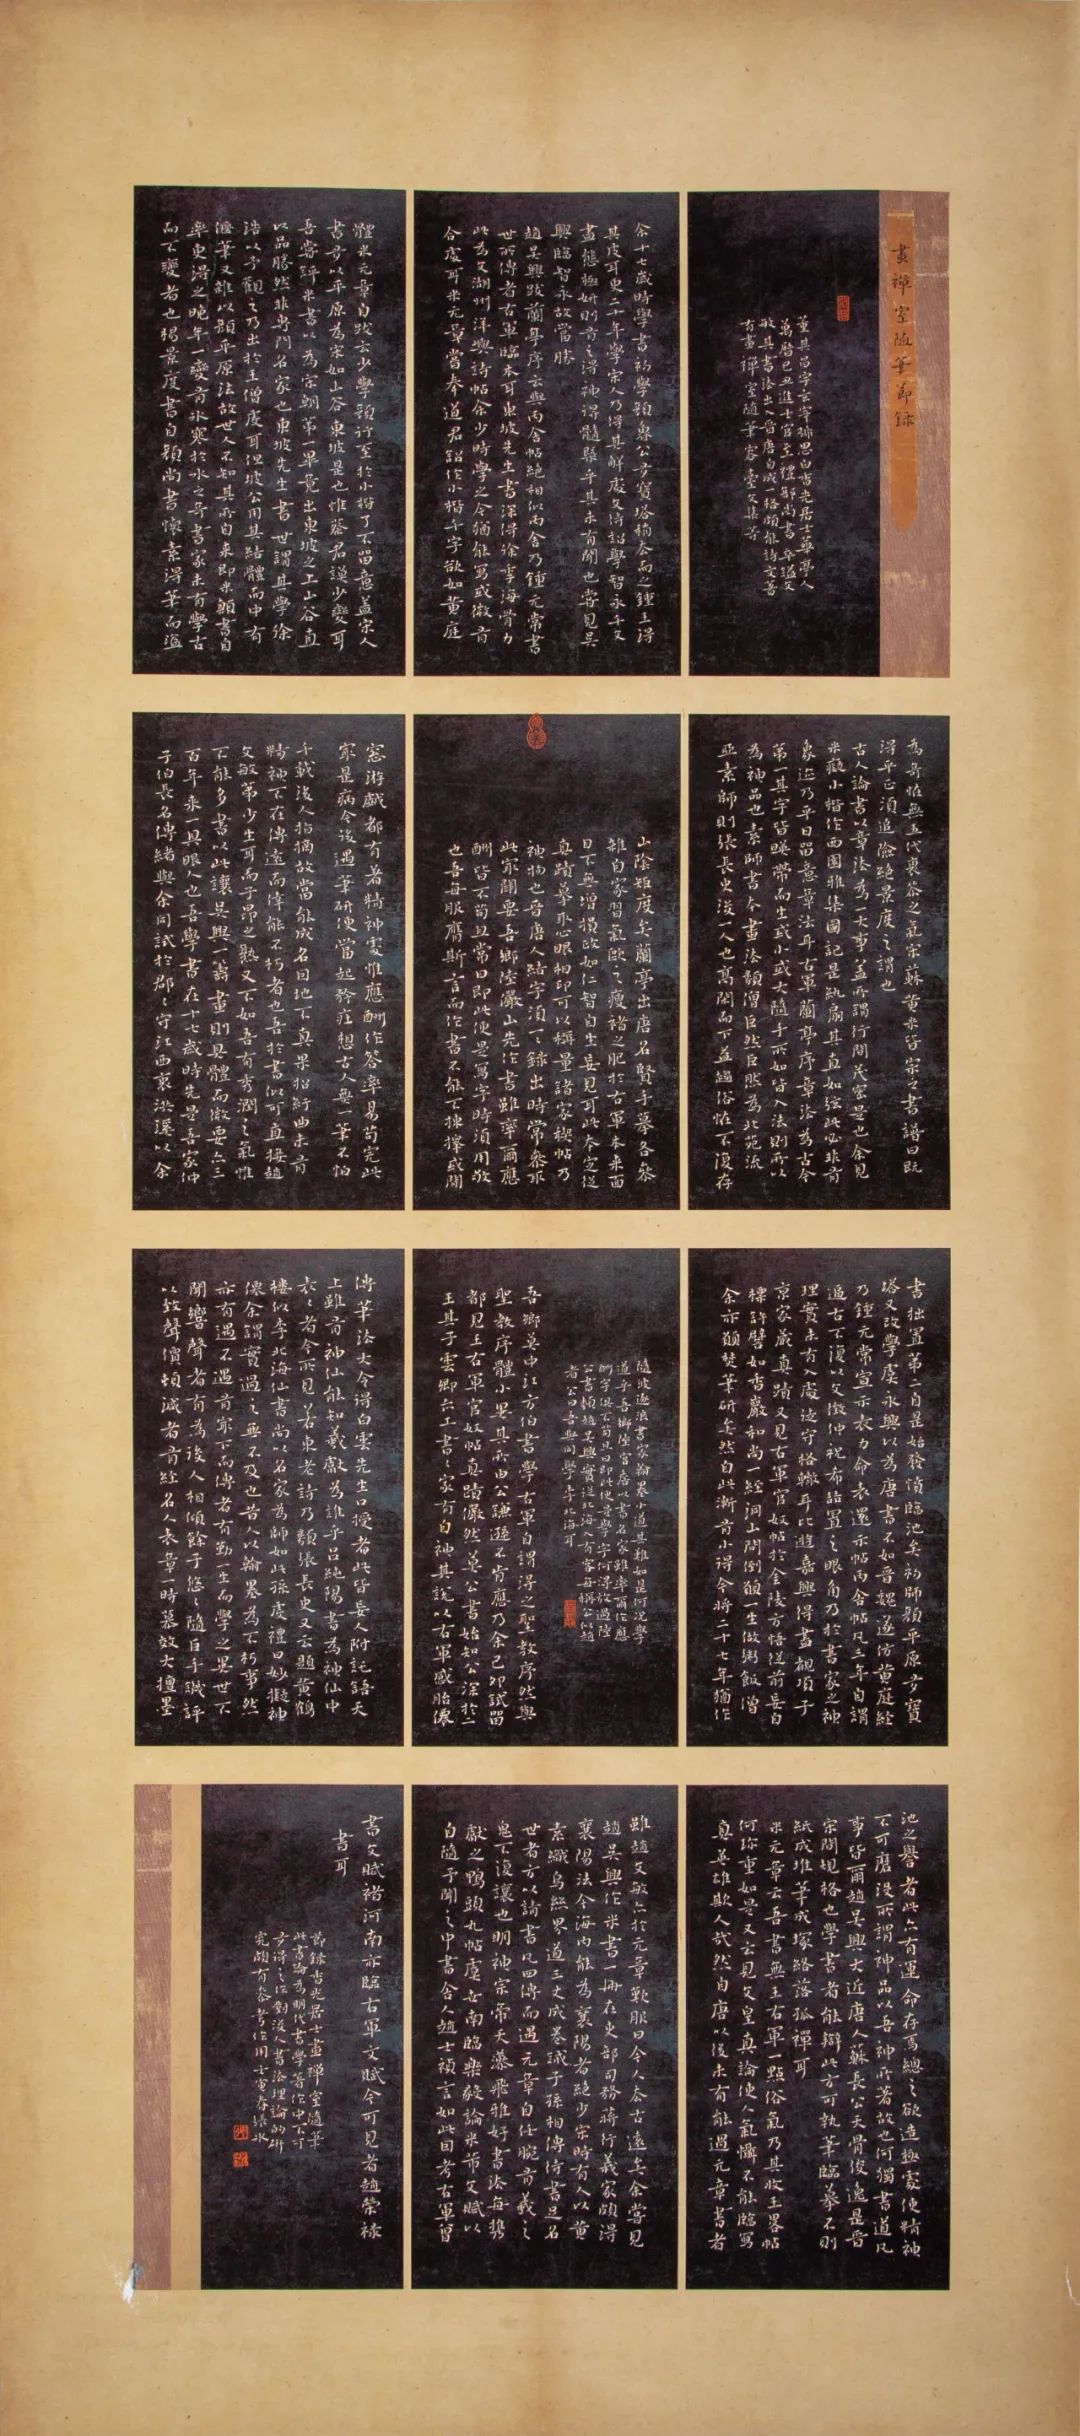 畫禪室隨筆節錄
董其昌字玄宰號思白香光居士華亭人
萬曆己丑進士官至禮部尚書卒謚文
敏其書法出入晉唐自成一格頗能詩文著
有畫禪室隨筆容臺文集等
余十七歲時學書初學顏魯公多寶塔稍去而之鍾王得
其皮耳更二十年學宋人乃得其解處文待詔學智永千文
盡態極妍則有之得神得髓槩乎其未有聞也嘗見吳
興臨智永故當勝
趙吳興跋蘭亭序云與丙舍帖絕相似丙舍乃鍾元常書
世所傳者右軍臨本耳東坡先生書深得徐季海骨力
此為文湖州洋嶼詩帖余少時學之今猶能寫或微有
合處耳米元章當奉道君詔作小楷千字欲如黃庭
體米元章自跋云少學顏行至於小楷了不留意蓋宋人
書多以平原為宗如山谷東坡是也惟蔡君謨少變耳
吾嘗評米書為宋朝第一畢竟出東坡之上山谷直
以品勝然非專門名家也東坡先生書世謂其學徐
浩以予觀之乃出於王僧虔耳但坡公用其結體而中有
偃筆又雜以顏平原法故世人不知其所自來即米顛書自
率更得之晚年一變有冰寒於水之奇書家未有學古
而不變者也楊景度書自顏尚書懷素得筆而溢
為奇怪無五代衰苶之氣宋蘇黃米皆宗之書譜曰既
得平正須追險絕景度之謂也
古人論書以章法為一大事蓋所謂行間茂密是也余見
米癡小楷作西園雅集圖記是紈扇其直如弦此必非有
象迹乃平日留意章法耳右軍蘭亭序章法為古今
第一其字皆暎帶而生或小或大隨手所如皆入法則所以
為神品也素師書本畫法類僧巨然巨然為北苑流
亞素師則張長史後一人也高閑而下益趨俗怪不復存
山陰矩度矣蘭亭出唐名賢手摹各參
雜自家習氣歐之瘦褚之肥於右軍本來面
目不無增損政如仁智自生妄見耳此本定從
真蹟摹取心眼相印可以稱量諸家禊帖乃
神物也晉唐人結字須一一錄出時常參取
此家關要吾鄉陸儼山先作書雖率爾應
酬皆不苟且常曰即此便是寫字時須用敬
也吾每服膺斯言而作書不能不揀擇或閒
窓游戲都有着精神處惟應酬作答率易苟完此
最是病今後遇筆研便當起矜莊想古人無一筆不怕
千載後人指摘故當能成名因地不真果招紆曲未有
精神不在傳遠而偉能不朽者也吾於書似可直接趙
文敏第少生耳而子昂之熟又不如吾有秀潤之氣惟
不能多書以此讓吳興一籌畫則具體而微要亦三
百年來一具眼人也吾學書在十七歲時先是吾家仲
子伯長名傳緒與余同試於郡々守江西衷洪溪以余
書拙置第二自是始發憤臨池矣初師顏平原多寶
塔又改學虞永興以為唐書不如晉魏遂仿黃庭經
乃鍾元常宣示表力命表還示帖丙舍帖凡三年自謂
逼古不復以文徵仲祝希喆置之眼角乃於書家之神
理實未有入處徒守格轍耳比遊嘉興得盡覩項子
京家藏真蹟又見右軍官奴帖於金陵方悟從前妄自
標許譬如香嚴和尚一經洞山問倒願一生做粥飯僧
余亦願焚筆研矣然自此漸有小得今將二十七年猶作
隨波逐浪書家翰墨小道其難如是何況學
道乎吾鄉陸宮詹以書名家雖率爾作應
酬字俱不苟且曰即此便是學字何得放過陸
公書類趙吳興實從北海入有客每稱公似趙
者公曰吾與同學李北海耳
吾鄉莫中江方伯書學右軍自謂得之聖教序然與
聖教序體小異其所由公謙遜不肯應乃余己卯試留
都見王右軍官奴帖真蹟儼然莫公書始知公深於二
王其子雲卿亦工書々家有自神其說以右軍感胎僊
傳筆法大令得白雲先生口授者此皆妄人附託語天
上雖有神仙能知羲獻為誰乎呂純陽書為神仙中
表々者今所見若東老詩乃類張長史又云題黃鶴
樓似李北海仙書尚以名家為師如此孫虔禮曰妙擬神
僊余謂實過之無不及也昔人以翰墨為不朽事然
亦有遇不遇有最下而傳者有勤一生而學之異世不
聞響聲者有為後人相傾餘子悠々隨巨手譏評
以致聲價頓減者有經名人表章一時慕效大擅墨
池之譽者此亦有運命存焉總之欲造極處使精神
不可磨沒所謂神品以吾神所著故也何獨書道凡
事皆爾趙吳興大近唐人蘇長公天骨俊逸是晉
宋間規格也學書者能辯此方可執筆臨摹不則
紙成堆筆成塚終落狐禪耳
米元章云吾書無王右軍一點俗氣乃其收王畧帖
何珍重如是又云見文皇真論使人氣懾不能臨寫
真英雄欺人哉然自唐以後未有能過元章書者
雖趙文敏亦於元章歎服曰今人去古遠矣余嘗見
趙吳興作米書一冊在吏部司務蔣行義家頗得
襄陽法今海內能為襄陽者絕少宋時有人以黃
素織烏絲界道三丈成卷誡子孫相傳待書足名
世者方以請書凡四傳而遇元章自任腕有羲之
鬼不復讓也明神宗帝天藻飛雅好書法每攜
獻之鴨頭丸帖虞世南臨樂毅論米芾文賦以
自隨予聞之中書舍人趙士禎言如此因考右軍曾
書文賦褚河南亦臨右軍文賦今可見者趙榮祿
書耳
節錄香光居士畫禪室隨筆
此書論為明代書學著作中不可
多得之作對後人書法理論的研
究頗有參考作用壬寅春張永